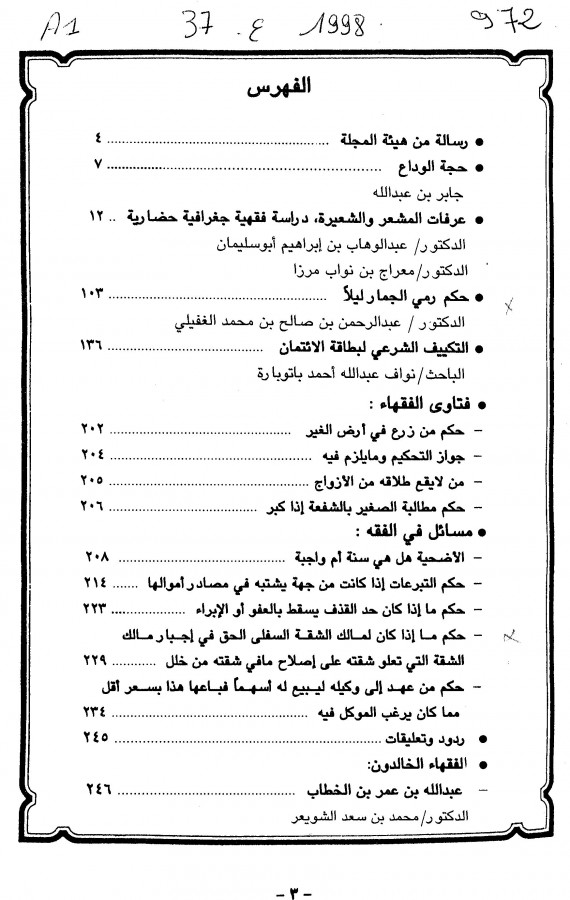 A1 37 ع 1998 972
الفهرس
● رسالة من هيئة المجلة ........ ٤
● حجة الوداع ........ ٧
جابر بن عبدالله
● عرفات المشعر والشعيرة، دراسة فقهية جغرافية حضارية .. ١٢
الدكتور/ عبدالوهاب بن إبراهيم أبوسليمان
الدكتور/معراج بن نواب مرزا
● حكم رمي الجمار ليلاً ........ ١٠٣
الدكتور / عبدالرحمن بن صالح بن محمد الغفيلي
● التكييف الشرعي لبطاقة الائتمان ........ ١٣٦
الباحث/نواف عبدالله أحمد باتوبارة
● فتاوى الفقهاء :
– حكم من زرع في أرض الغير ........ ٢٠٢
– جواز التحكيم ومايلزم فيه ........ ٢٠٤
– من لايقع طلاقه من الأزواج ........ ٢٠٥
– حكم مطالبة الصغير بالشفعة إذا كبر ........ ٢٠٦
● مسائل في الفقه :
– الأضحية هل هي سنة أم واجبة ........ ٢٠٨
– حكم التبرعات إذا كانت من جهة يشتبه في مصادر أموالها ....... ٢١٤
– حكم ما إذا كان حد القذف يسقط بالعفو أو الإبراء ........ ٢٢٣
– حكم ما إذا كان لمالك الشقة السفلى الحق في إجبار مالك
الشقة التي تعلو شقته على إصلاح مافي شقته من خلل ........ ٢٢٩
– حكم من عهد إلى وكيله ليبيع له أسهماً فباعها هذا بسعر أقل
مما كان يرغب الموكل فيه ........ ٢٣٤
● ردود وتعليقات ........ ٢٤٥
● الفقهاء الخالدون:
– عبدالله بن عمر بن الخطاب ........ ٢٤٦
الدكتور/محمد بن سعد الشويعر
- ٣ -